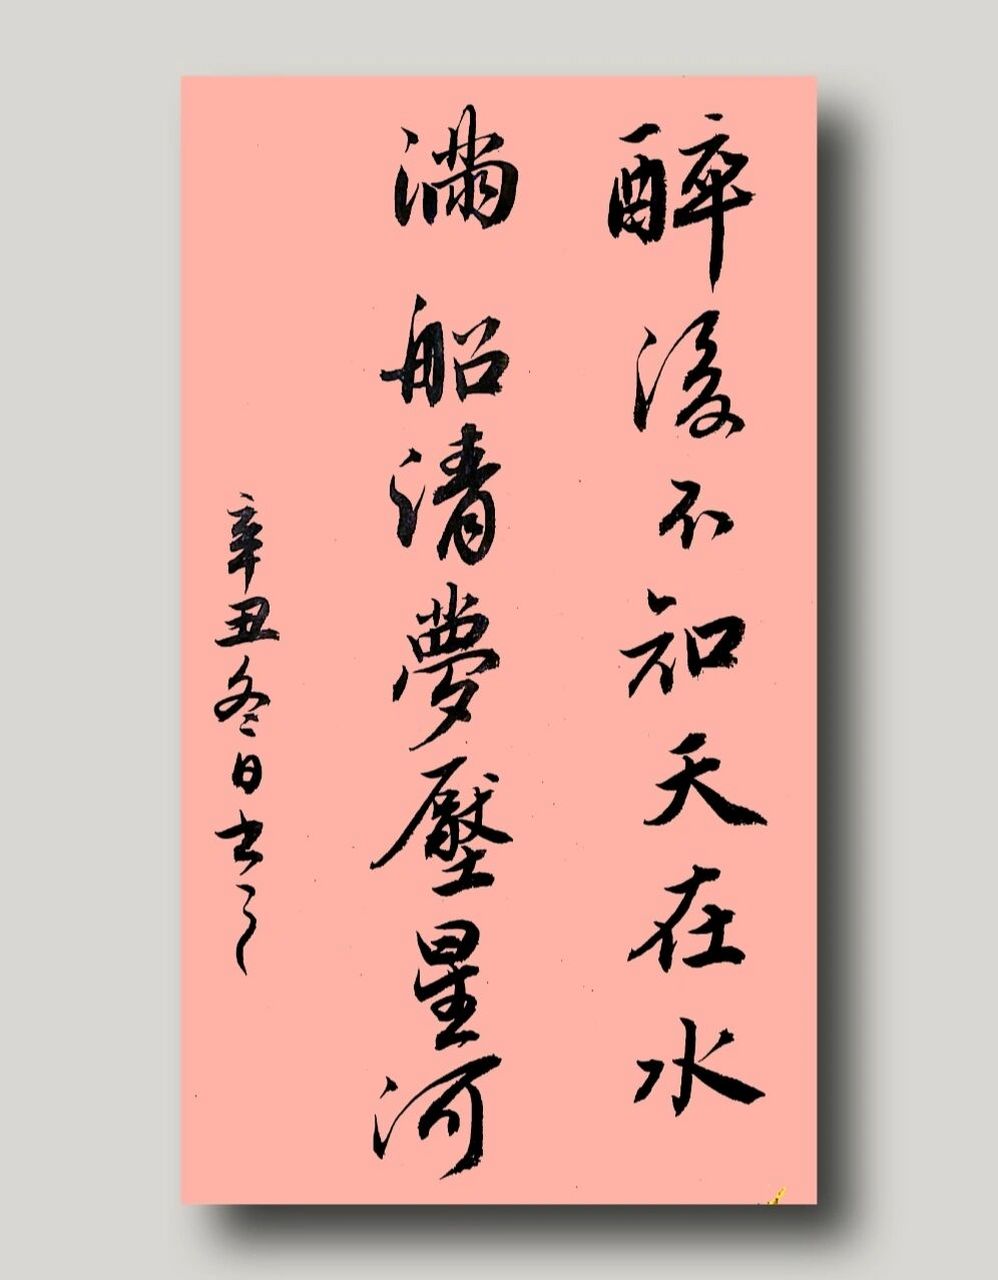 醉後不知天在水
滿船清夢壓星河
辛丑冬日书之